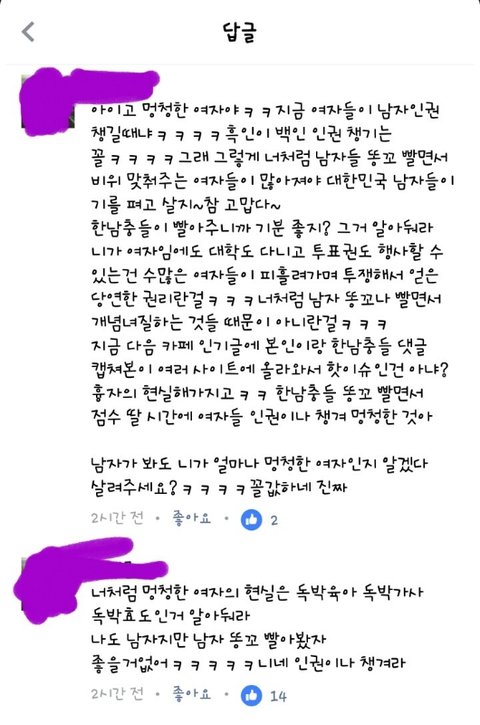 답글
아이고 멍청한 여자야ㅋㅋ지금 여자들이 남자인권
챙길때냐ㅋㅋㅋㅋ흑인이 백인 인권 챙기는
꼴ㅋㅋㅋㅋ그래 그렇게 너처럼 남자들 똥꼬 빨면서
비위 맞춰주는 여자들이 많아져야 대한민국 남자들이
기를 펴고 살지~참 고맙다~
한남충들이 빨아주니까 기분 좋지? 그거 알아둬라
니가 여자임에도 대학도 다니고 투표권도 행사할 수
있는건 수많은 여자들이 피흘려가며 투쟁해서 얻은
당연한 권리란걸ㅋㅋㅋ너처럼 남자 똥꼬나 빨면서
개념녀질하는 것들 때문이 아니란걸ㅋㅋㅋ
지금 다음 카페 인기글에 본인이랑 한남충들 댓글
캡쳐본이 여러 사이트에 올라와서 핫이슈인건 아냐?
흉자의 현실해가지고ㅋㅋ 한남충들 똥꼬 빨면서
점수 딸 시간에 여자들 인권이나 챙겨 멍청한 것아
남자가 봐도 니가 얼마나 멍청한 여자인지 알겠다
살려주세요?ㅋㅋㅋㅋ꼴값하네 진짜
2시간 전 · 좋아요 · 2
너처럼 멍청한 여자의 현실은 독박육아 독박가사
독박효도인거 알아둬라
나도 남자지만 남자 똥꼬 빨아봤자
좋을거없어ㅋㅋㅋㅋㅋ니네 인권이나 챙겨라
2시간 전 · 좋아요 · 14